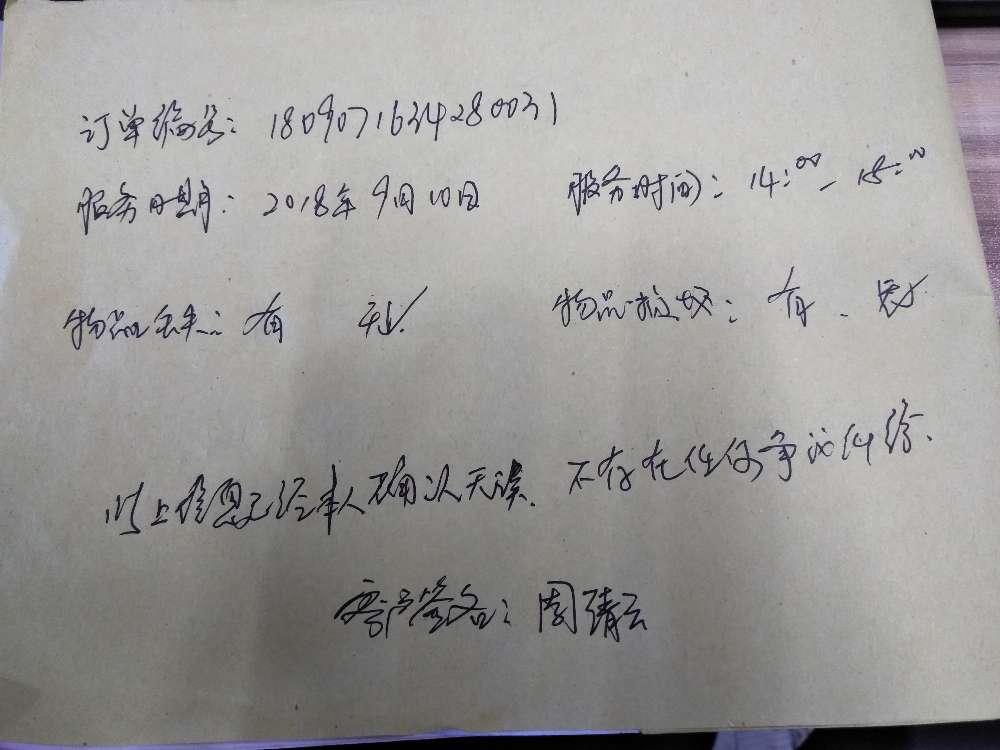 订单编号：1809071634280031
服务日期：2018年9月10日 服务时间：14:00-18:00
物品丢失：有 无√ 物品损坏：有、无√
以上信息已经本人确认无误、不存在任何争议纠纷、
客户签名：周靖云